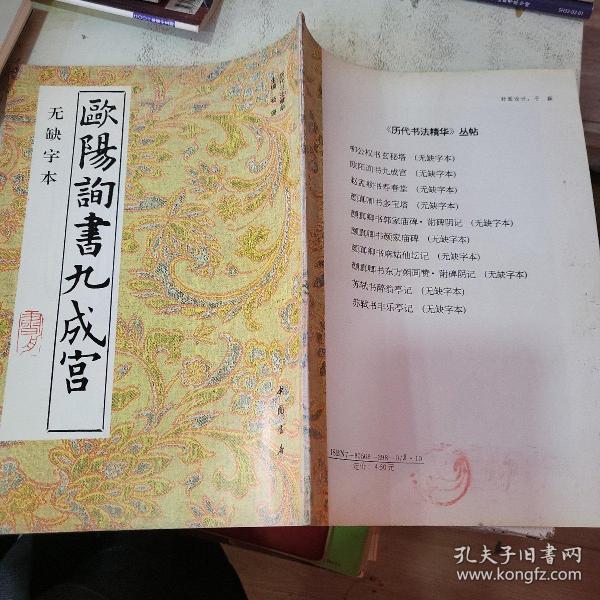 歐陽詢書九成宫
无缺字本
中国书店
封面设计：于
《历代书法精华》丛帖
柳公权书玄秘塔（无缺字本）
欧阳询书九成宫（无缺字本）
赵孟頫书寿春堂（无缺字本）
颜真卿书多宝塔（无缺字本）
颜真卿书郭家庙碑·附碑阴记（无缺字本）
颜真卿书颜家庙碑（无缺字本）
颜真卿书麻姑仙坛记（无缺字本）
颜真卿书东方朔画赞·附碑阴记（无缺字本）
苏轼书醉翁亭记（无缺字本）
苏轼书丰乐亭记（无缺字本）
ISBN7-80568-398-
定价：4.50元
孔夫子旧书网
www.kongfz.com